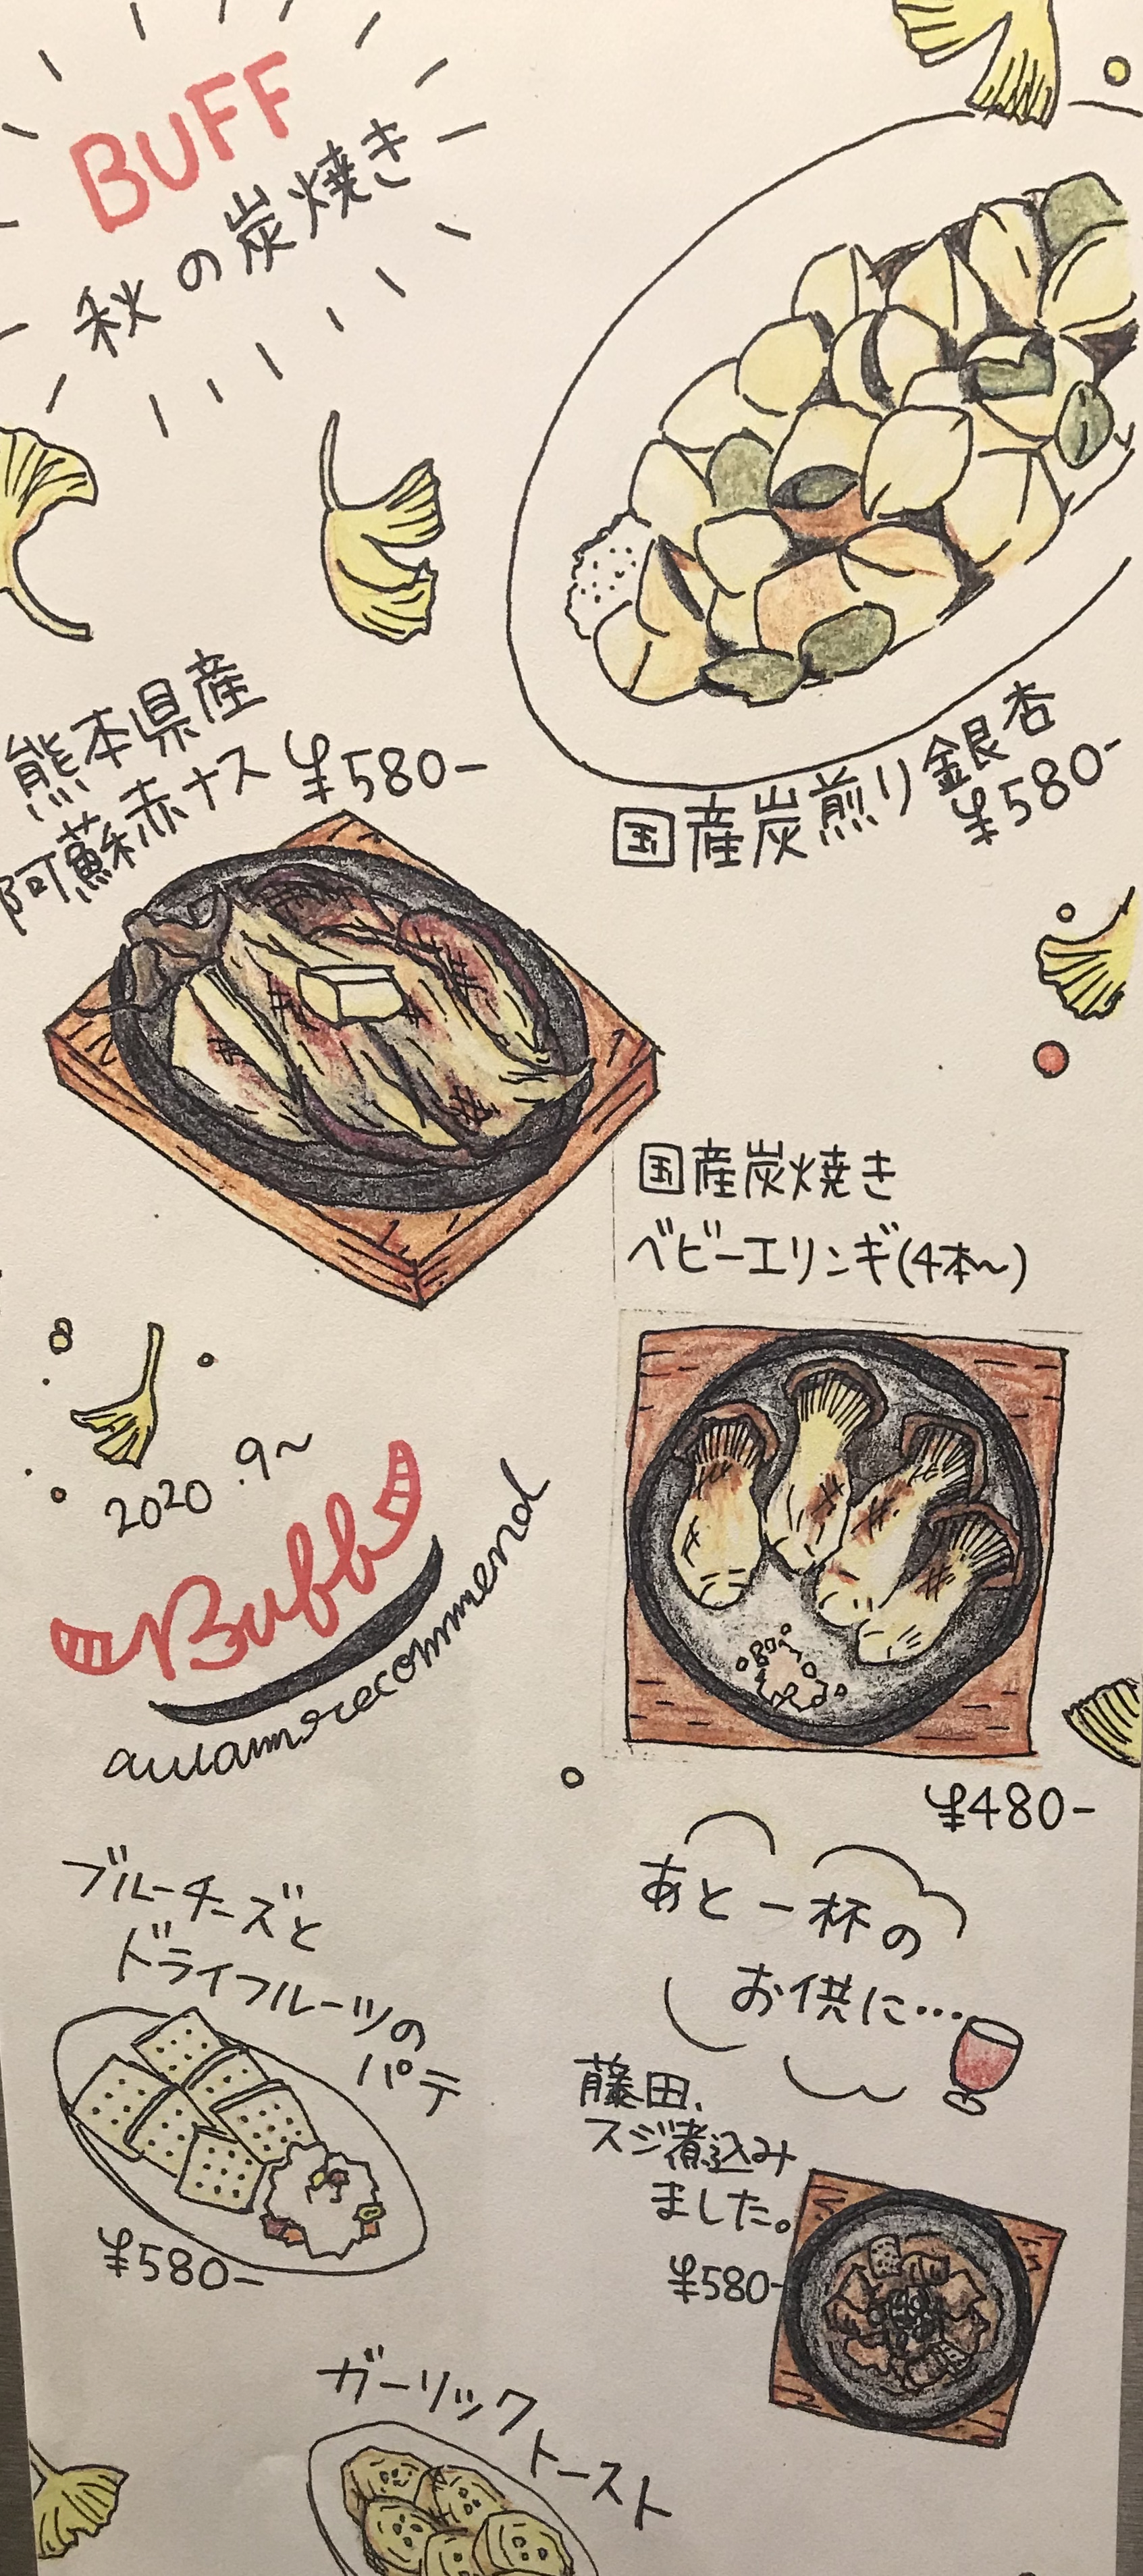 BUFF
秋の炭焼き
国産炭煎り銀杏
¥580-
熊本県産
阿蘇赤ナス
¥580-
国産炭焼き
ベビーエリンギ(4本〜)
¥480-
2020.9〜
Buff
recommend
ブルーチーズと
ドライフルーツの
パテ
¥580-
あと一杯の
お供に…
藤田、
スジ煮込み
ました。
¥580-
ガーリック
トースト